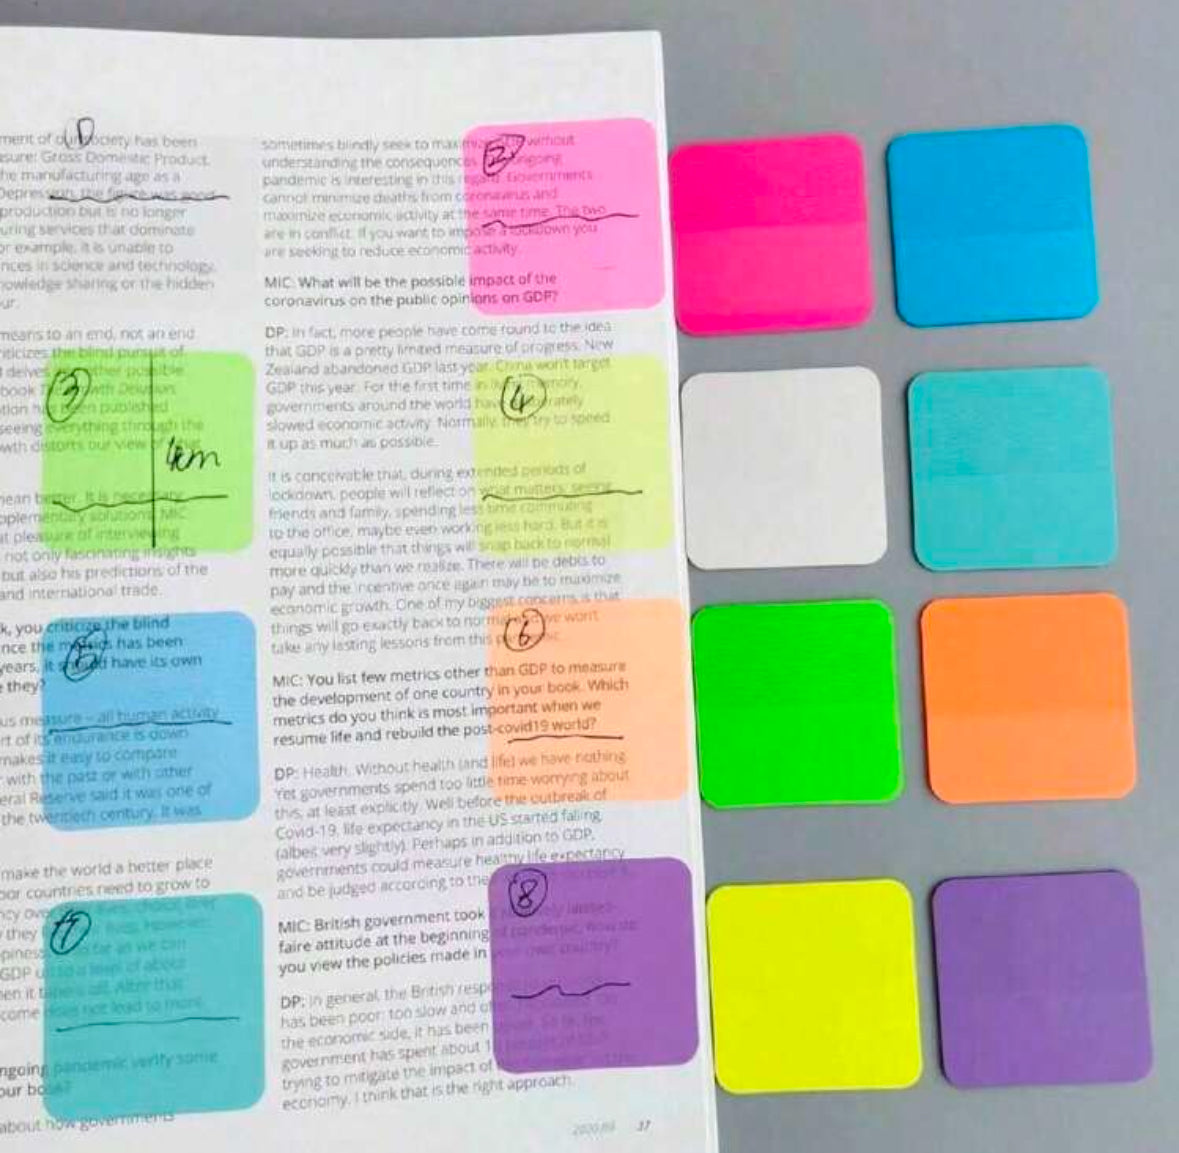 ment of our society has been
asure: Gross Domestic Product.
he manufacturing age as a
Depression, the figure was good
production but is no longer
uring services that dominate
or example, it is unable to
nces in science and technology,
nowledge sharing or the hidden
ur.
means to an end, not an end
riticizes the blind pursuit of
d delves other possible
book
tion has been published
seeing everything through the
wth distorts our view of
③
4cm
mean better. It is necessary
pplementary solutions. MIC
at pleasure of interviewing
not only fascinating insights
but also his predictions of the
and international trade.
k, you criticize the blind
nce the metrics has been
years, it should have its own
they?
⑤
us measure – all human activity
rt of its endurance is down
makes it easy to compare
with the past or with other
eral Reserve said it was one of
the twentieth century. It was
make the world a better place
oor countries need to grow to
they
⑦
piness as far as we can
GDP up to a level of about
en it tapers off. After that
come does not lead to more
ngoing pandemic verify some
our book?
about how governments
sometimes blindly seek to maximize without
②
understanding the consequences ongoing
pandemic is interesting in this regard. Governments
cannot minimize deaths from coronavirus and
maximize economic activity at the same time. The two
are in conflict. If you want to impose a lockdown you
are seeking to reduce economic activity.
MIC: What will be the possible impact of the
coronavirus on the public opinions on GDP?
DP: In fact, more people have come round to the idea
that GDP is a pretty limited measure of progress. New
Zealand abandoned GDP last year. China won't target
GDP this year. For the first time in living memory,
④
governments around the world have deliberately
slowed economic activity. Normally, they try to speed
it up as much as possible.
It is conceivable that, during extended periods of
lockdown, people will reflect on what matters: seeing
friends and family, spending less time commuting
to the office, maybe even working less hard. But it is
equally possible that things will snap back to normal
more quickly than we realize. There will be debts to
pay and the incentive once again may be to maximize
economic growth. One of my biggest concerns is that
things will go exactly back to normal we won't
⑥
take any lasting lessons from this pandemic.
MIC: You list few metrics other than GDP to measure
the development of one country in your book. Which
metrics do you think is most important when we
resume life and rebuild the post-covid19 world?
DP: Health. Without health (and life) we have nothing.
Yet governments spend too little time worrying about
this, at least explicitly. Well before the outbreak of
Covid-19, life expectancy in the US started falling
(albeit very slightly). Perhaps in addition to GDP,
governments could measure healthy life expectancy
and be judged according to
⑧
MIC: British government took laissez-
faire attitude at the beginning of pandemic, how do
you view the policies made in your own country?
DP: In general, the British response
has been poor: too slow and
the economic side, it has been
government has spent about
trying to mitigate the impact of
economy. I think that is the right approach.
37